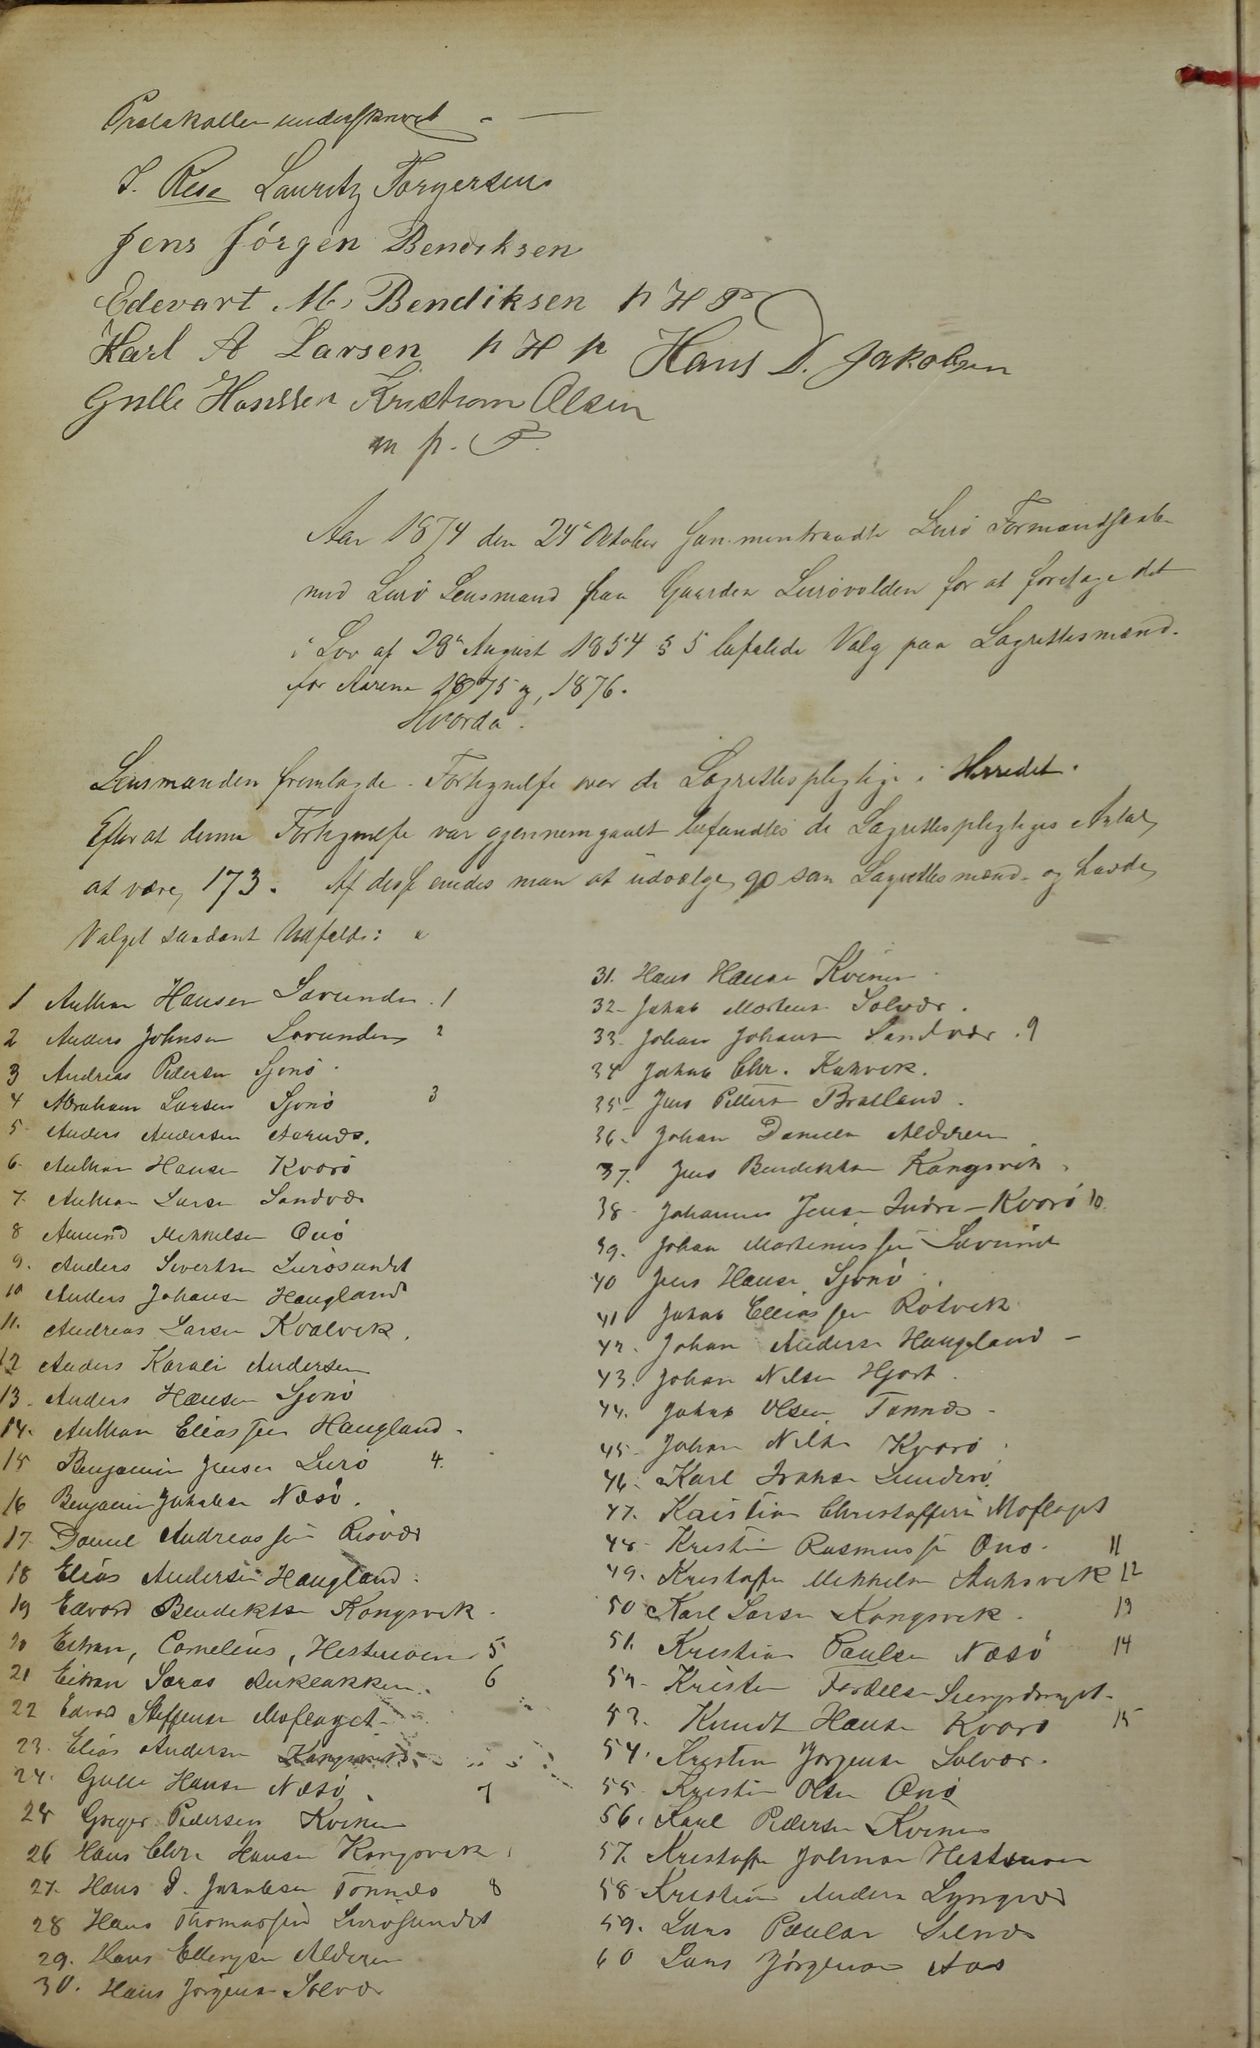 Protokollen underskrevet - —
I. Rese Lauritz Torgersens
Jens Jörgen Bendiksen
Edevart M. Bendiksen p H P
Karl A Larsen p H p Hans D. Jakobsen
Gulle Hanssen Kristian Olsen
m p. P.
Aar 1874 den 24de Oktober sammentraadte Lurö Formandskab
med Lurö Lensmand paa Gaarden Lurövolden for at foretage det
i Lov af 28de August 1854 § 5 befalede Valg paa Lagrettesmænd
for Aarene 1875 og 1876.
Hvorda.
Lensmanden fremlagde Fortegnelse over de Lagrettespligtige i Herredet.
Efter at denne Fortegnelse var gjennemgaaet befandtes de Lagrettespligtiges Antal
at være 173. Af disse enedes man at udvælge 90 som Lagrettesmænd og havde
Valget saadant Udfald:
1 Anthon Hansen Lovunden . 1
2 Anders Johnsen Lovunden 2
3 Andreas Pedersen Sjonö
4 Abraham Larsen Sjonö 3
5 Anders Andersen Aarnæs.
6 Anthon Hansen Kvarö
7. Anthon Larsen Sandvær
8 Amund Mikkelsen Onö
9. Anders Sivertsen Lurösundet
10 Anders Johansen Haugland
11. Andreas Larsen Kvalvik.
12 Anders Karoli Andersen
13. Anders Hansen Sjonö
14. Anthon Eliassen Haugland
15 Benjamin Jensen Lurö 4.
16 Benjamin Jakobsen Næsö.
17. Daniel Andreassen Risvær
18 Elias Andersen Haugland.
19 Edvard Bendiktsen Kongsvik.
20 Esten, Cornelius, Hestmoen 5
21 Larsen 6
22 Edvard Steffensen Moflaget
23. Elias Andersen Kongsvik
24. Gulle Hansen Næsö 7
25 Greger Pedersen Kvinen
26 Hans Chr. Hansen Kongsvik
27. Hans D. Jakobsen Tonnæs 8
28 Hans Thomassen Lurösundet
29. Hans Ellingsen Alderen
30. Hans Jörgensen Solvær
31. Hans Hansen Kvinen
32- Jakob Mortensen Solvær.
33. Johan Johansen Sandvær . 9
34 Jakob Chr. Kahvik.
35- Jens Pettersen Bratland.
36- Johan Danielsen Alderen
37. Jens Bendiktsen Kongsvik
38- Johannes Jensen Indre-Kvarö 10.
39. Johan Martinussen Lovund
40 Jens Hansen Sjonö
41 Jakob Eliassen Rotvik
42. Johan Andersen Haugland -
43. Johan Nilsen Hjort
44. Jakob Olsen Tonnæs -
45- Johan Nilsen Kvarö
46. Karl Isaksen Sunderö
47. Kristian Christoffersen Moflaget
48- Kristen Rasmussen Onö. 11
49. Kristoffer Mikkelsen Auksvik 12
50 Karl Larsen Kongsvik. 13
51. Kristian Paulsen Næsö 14
52. Kristen
53. Knudt Hansen Kvarö 15
54. Kristen Jörgensen Solvær.
55- Kristen Olsen Onö
56. Karl Pedersen Kvinen
57. Kristoffer Johnsen Hestmoen
58 Kristian Andersen Lyngvær
59. Lars Paulsen Selnæs
60 Lars Jörgensen Aas